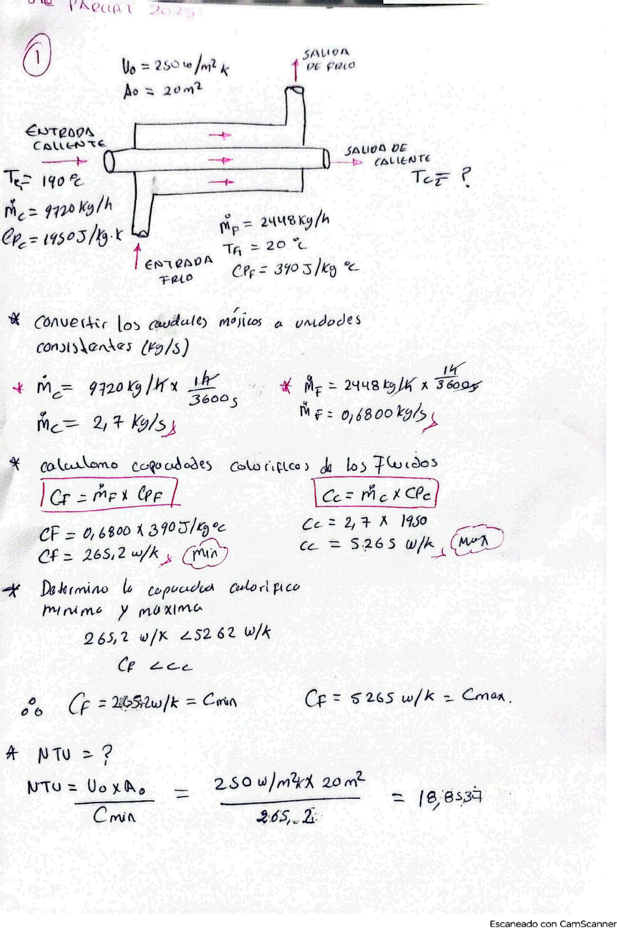 PARCIAL 2025
1
Uo = 250 w/m² k
Ao = 20 m²
SALIDA
DE FRIO
ENTRADA
CALIENTE
SALIDA DE
CALIENTE
Tc₁ = 190 °c
Tc₂ = ?
ṁc = 9720 kg/h
Cpc = 1950 J/kg.k
ṁF = 2448 kg/h
TF₁ = 20 °c
CPF = 390 J/kg °c
ENTRADA
FRIO
* convertir los caudales másicos a unidades
consistentes (kg/s)
* ṁc = 9720 kg/h x 1h/3600s
* ṁF = 2448 kg/h x 1h/3600s
ṁc = 2,7 kg/s
ṁF = 0,6800 kg/s
* calculamo capacidades calorificos de los Fluidos
CF = ṁF x CPF
Cc = ṁc x CPc
CF = 0,6800 x 390 J/kg°c
Cc = 2,7 x 1950
CF = 265,2 w/k min
cc = 5265 w/k Max
* Determino la capacidad calorifico
minima y maxima
265,2 w/k < 5262 w/k
CF < cc
∴ CF = 265,2 w/k = Cmin
CF = 5265 w/k = Cmax.
NTU = ?
NTU = Uo x Ao / Cmin = 250 w/m²k x 20 m² / 265,2 = 18,8537
Escaneado con CamScanner